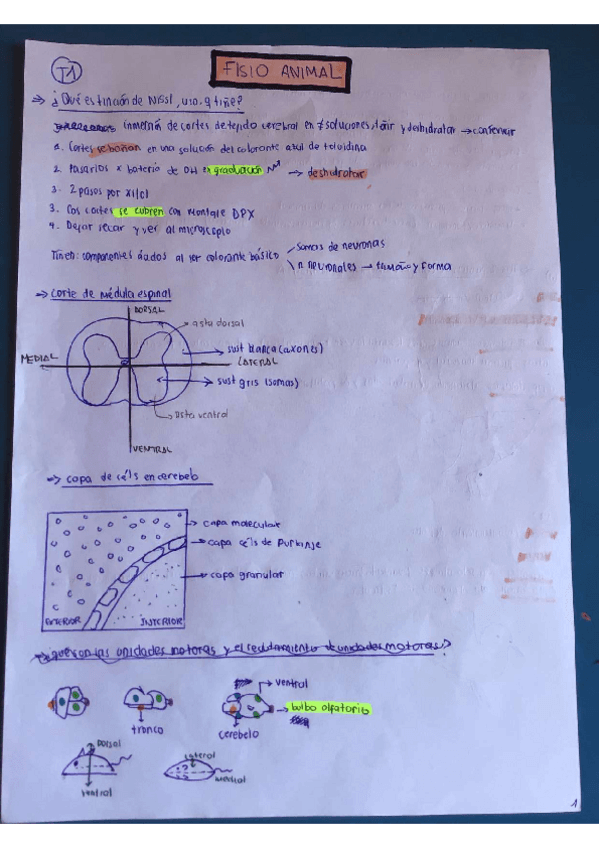 T1
FISIO ANIMAL
⇒ ¿Qué es tinción de Nissl, uso. q tiñe?
inmersión de cortes de tejido cerebral en ≠ soluciones, tañir y deshidratar → conservar
1. Cortes se bañan en una solución del colorante azul de toloidina
2. Pasarlos x batería de OH en graduación → deshidratar
3. 2 pasos por xilol
3. Los cortes se cubren con montaje DPX
4. Dejar secar y ver al microscopio
Tiñen: componentes ácidos al ser colorante básico
somas de neuronas
n. neuronales → tamaño y forma
→ corte de médula espinal
DORSAL
asta dorsal
sust blanca (axones)
MEDIAL
LATERAL
sust gris (somas)
asta ventral
VENTRAL
→ copa de céls en cerebelo
capa molecular
capa céls de Purkinje
capa granular
EXTERIOR
INTERIOR
que son las unidades motoras y el reclutamiento de unidades motoras?
ventral
bulbo olfatorio
tronco
cerebelo
Dorsal
ventral
lateral
medial
1